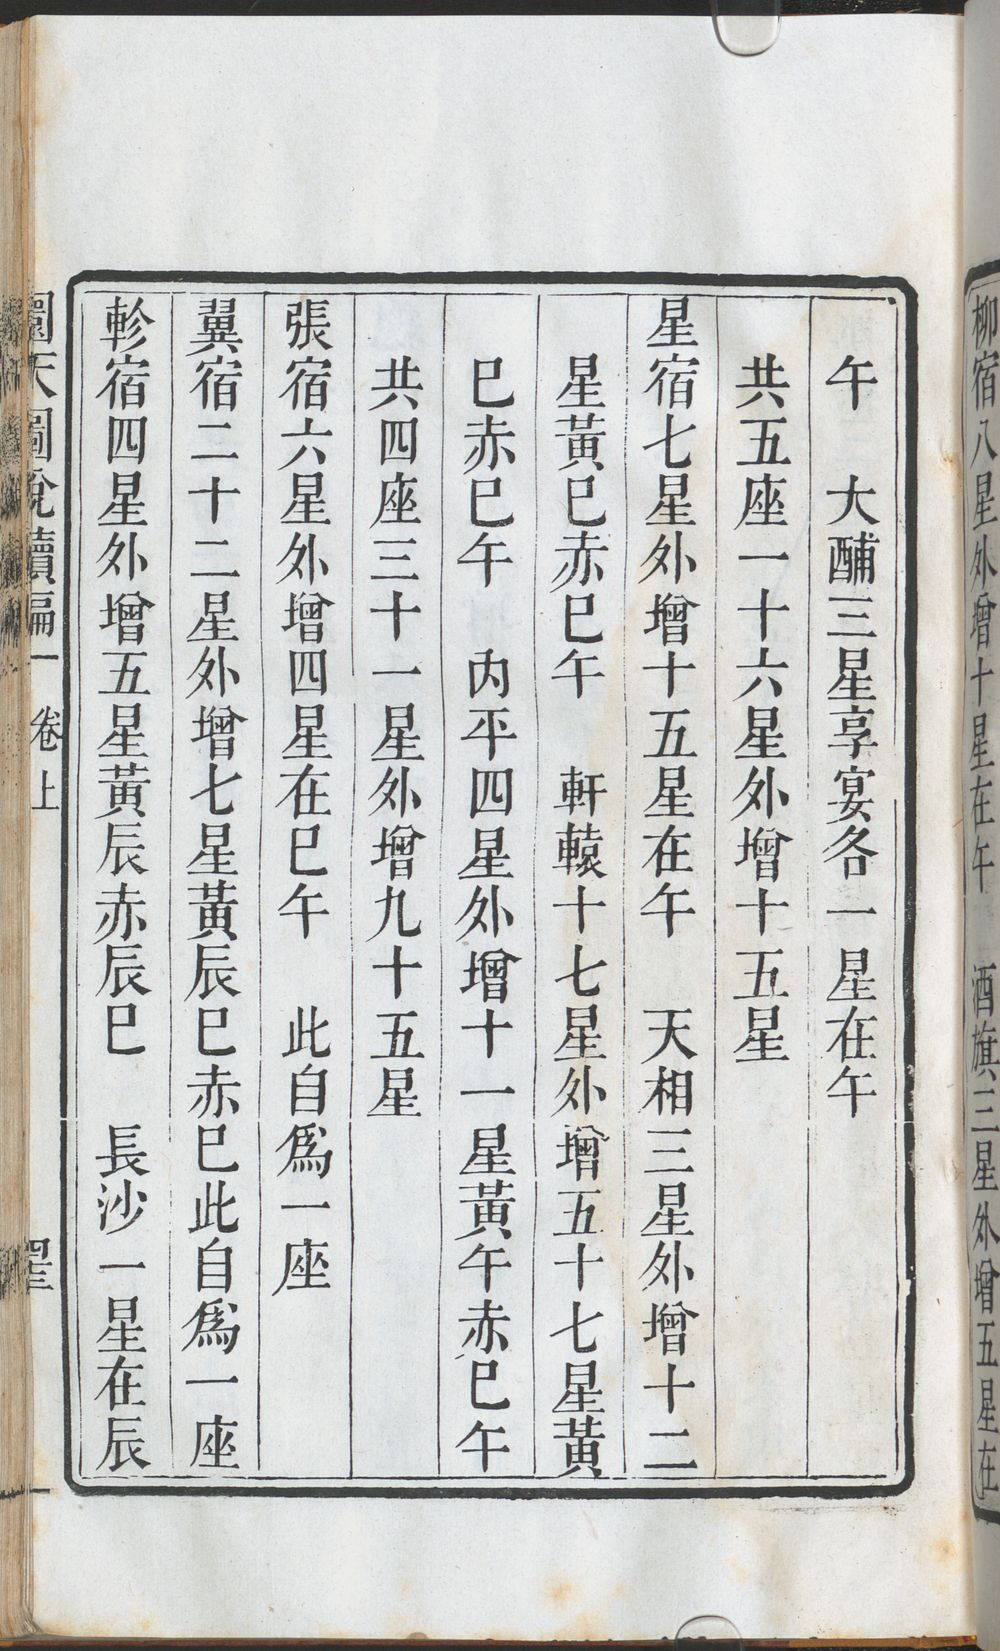 柳宿八星外增十星在午　酒旗三星外增五星在
午　大酺三星享宴各一星在午
共五座一十六星外增十五星
星宿七星外增十五星在午　天相三星外增十二
星黃巳赤巳午　軒轅十七星外增五十七星黃
巳赤巳午　內平四星外增十一星黃午赤巳午
共四座三十一星外增九十五星
張宿六星外增四星在巳午　此自爲一座
翼宿二十二星外增七星黃辰巳赤巳此自爲一座
軫宿四星外增五星黃辰赤辰巳　長沙一星在辰
圜天圖說續編　卷上